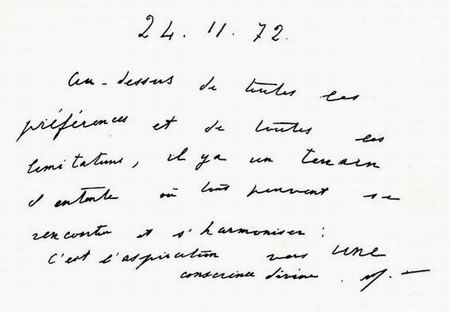 24.11.72.
Au-dessus de toutes les
préférences et de toutes les
limitations, il y a un terrain
d'entente où tous peuvent se
rencontrer et s'harmoniser :
C'est l'aspiration vers une
conscience divine.